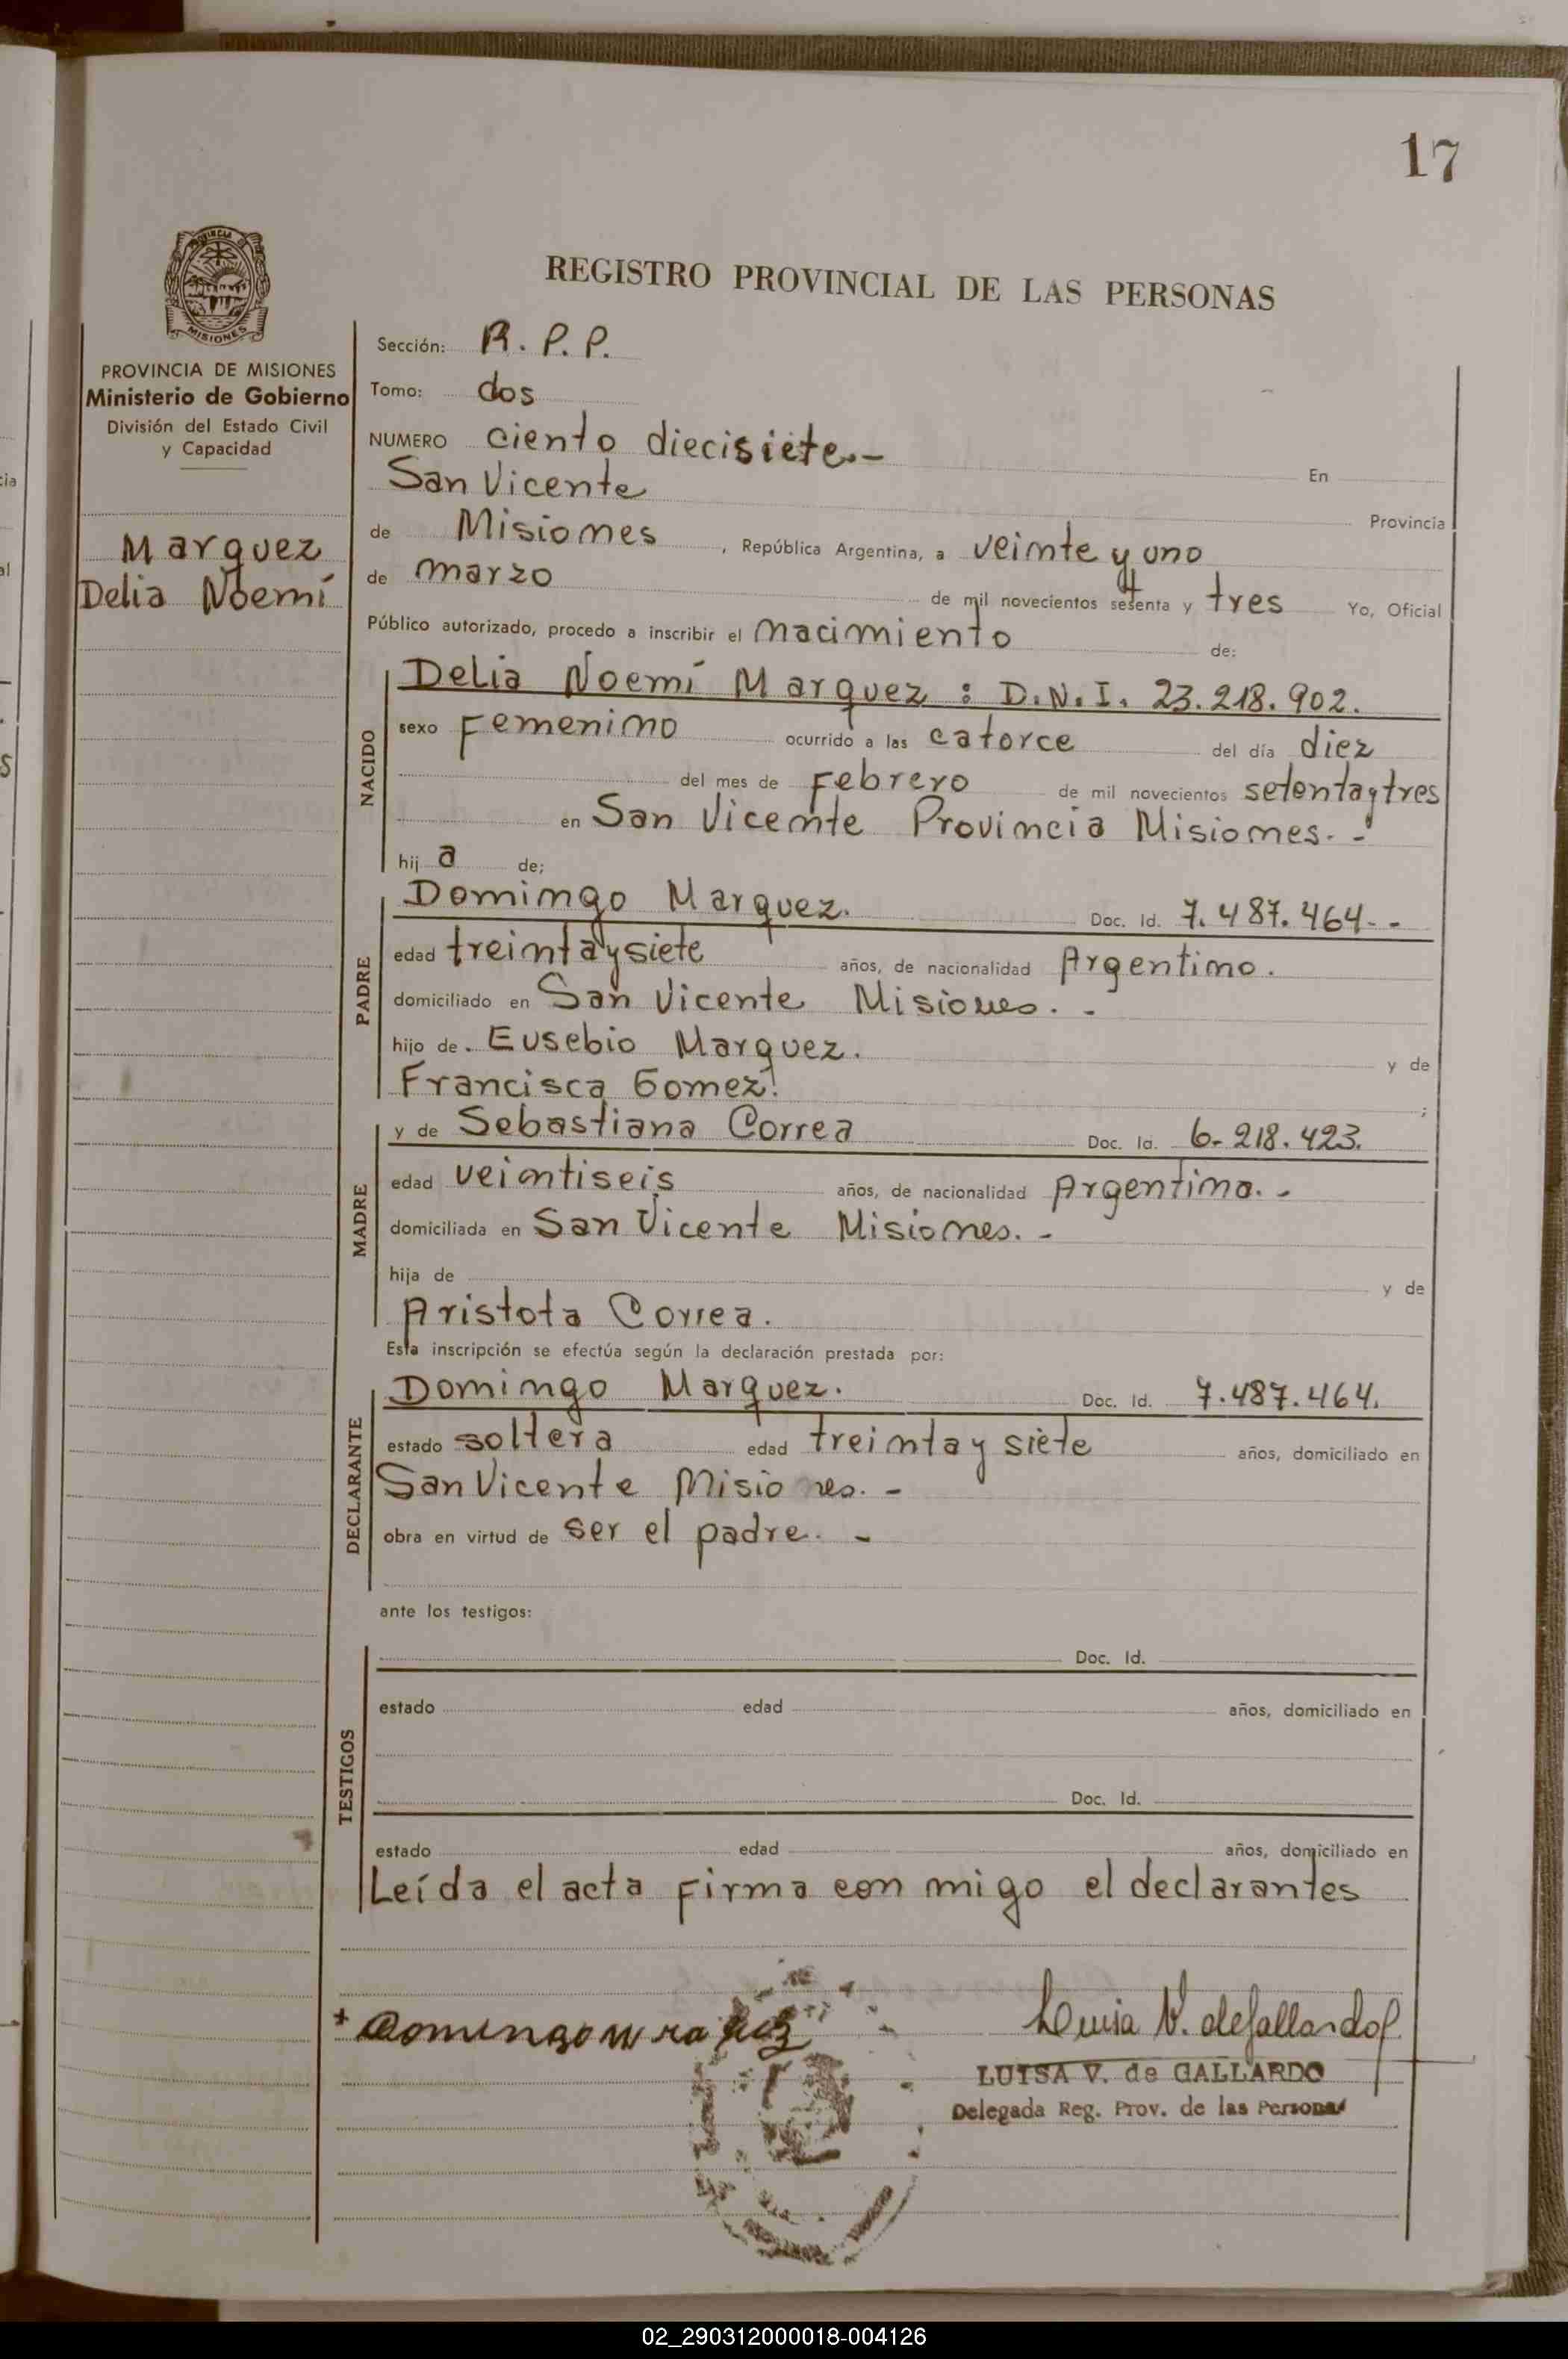 17
PROVINCIA
MISIONES
PROVINCIA DE MISIONES
Ministerio de Gobierno
División del Estado Civil
y Capacidad
Marquez
Delia Noemí
REGISTRO PROVINCIAL DE LAS PERSONAS
Sección: R. P. P.
Tomo: dos
NUMERO ciento diecisiete.- En
San Vicente Provincia
de Misiones, República Argentina, a veinte y uno
de marzo de mil novecientos setenta y tres Yo, Oficial
Público autorizado, procedo a inscribir el nacimiento de:
NACIDO
Delia Noemí Marquez : D.N.I. 23.218.902.
sexo Femenino ocurrido a las catorce del día diez
del mes de Febrero de mil novecientos setenta y tres
en San Vicente Provincia Misiones. -
hij a de;
PADRE
Domingo Marquez. Doc. Id. 7.487.464.-
edad treinta y siete años, de nacionalidad Argentino.
domiciliado en San Vicente Misiones. -
hijo de. Eusebio Marquez. y de
Francisca Gomez. ;
MADRE
y de Sebastiana Correa Doc. Id. 6.218.423.
edad veintiseis años, de nacionalidad Argentina. -
domiciliada en San Vicente Misiones. -
hija de y de
Aristota Correa.
Esta inscripción se efectúa según la declaración prestada por:
DECLARANTE
Domingo Marquez. Doc. Id. 7.487.464.
estado soltera edad treinta y siete años, domiciliado en
San Vicente Misiones. -
obra en virtud de ser el padre. -
ante los testigos:
TESTIGOS
Doc. Id.
estado edad años, domiciliado en
Doc. Id.
estado edad años, domiciliado en
Leída el acta firma con migo el declarantes
Luisa V. de Gallardo
LUISA V. de GALLARDO
Delegada Reg. Prov. de las Personas
02_290312000018-004126